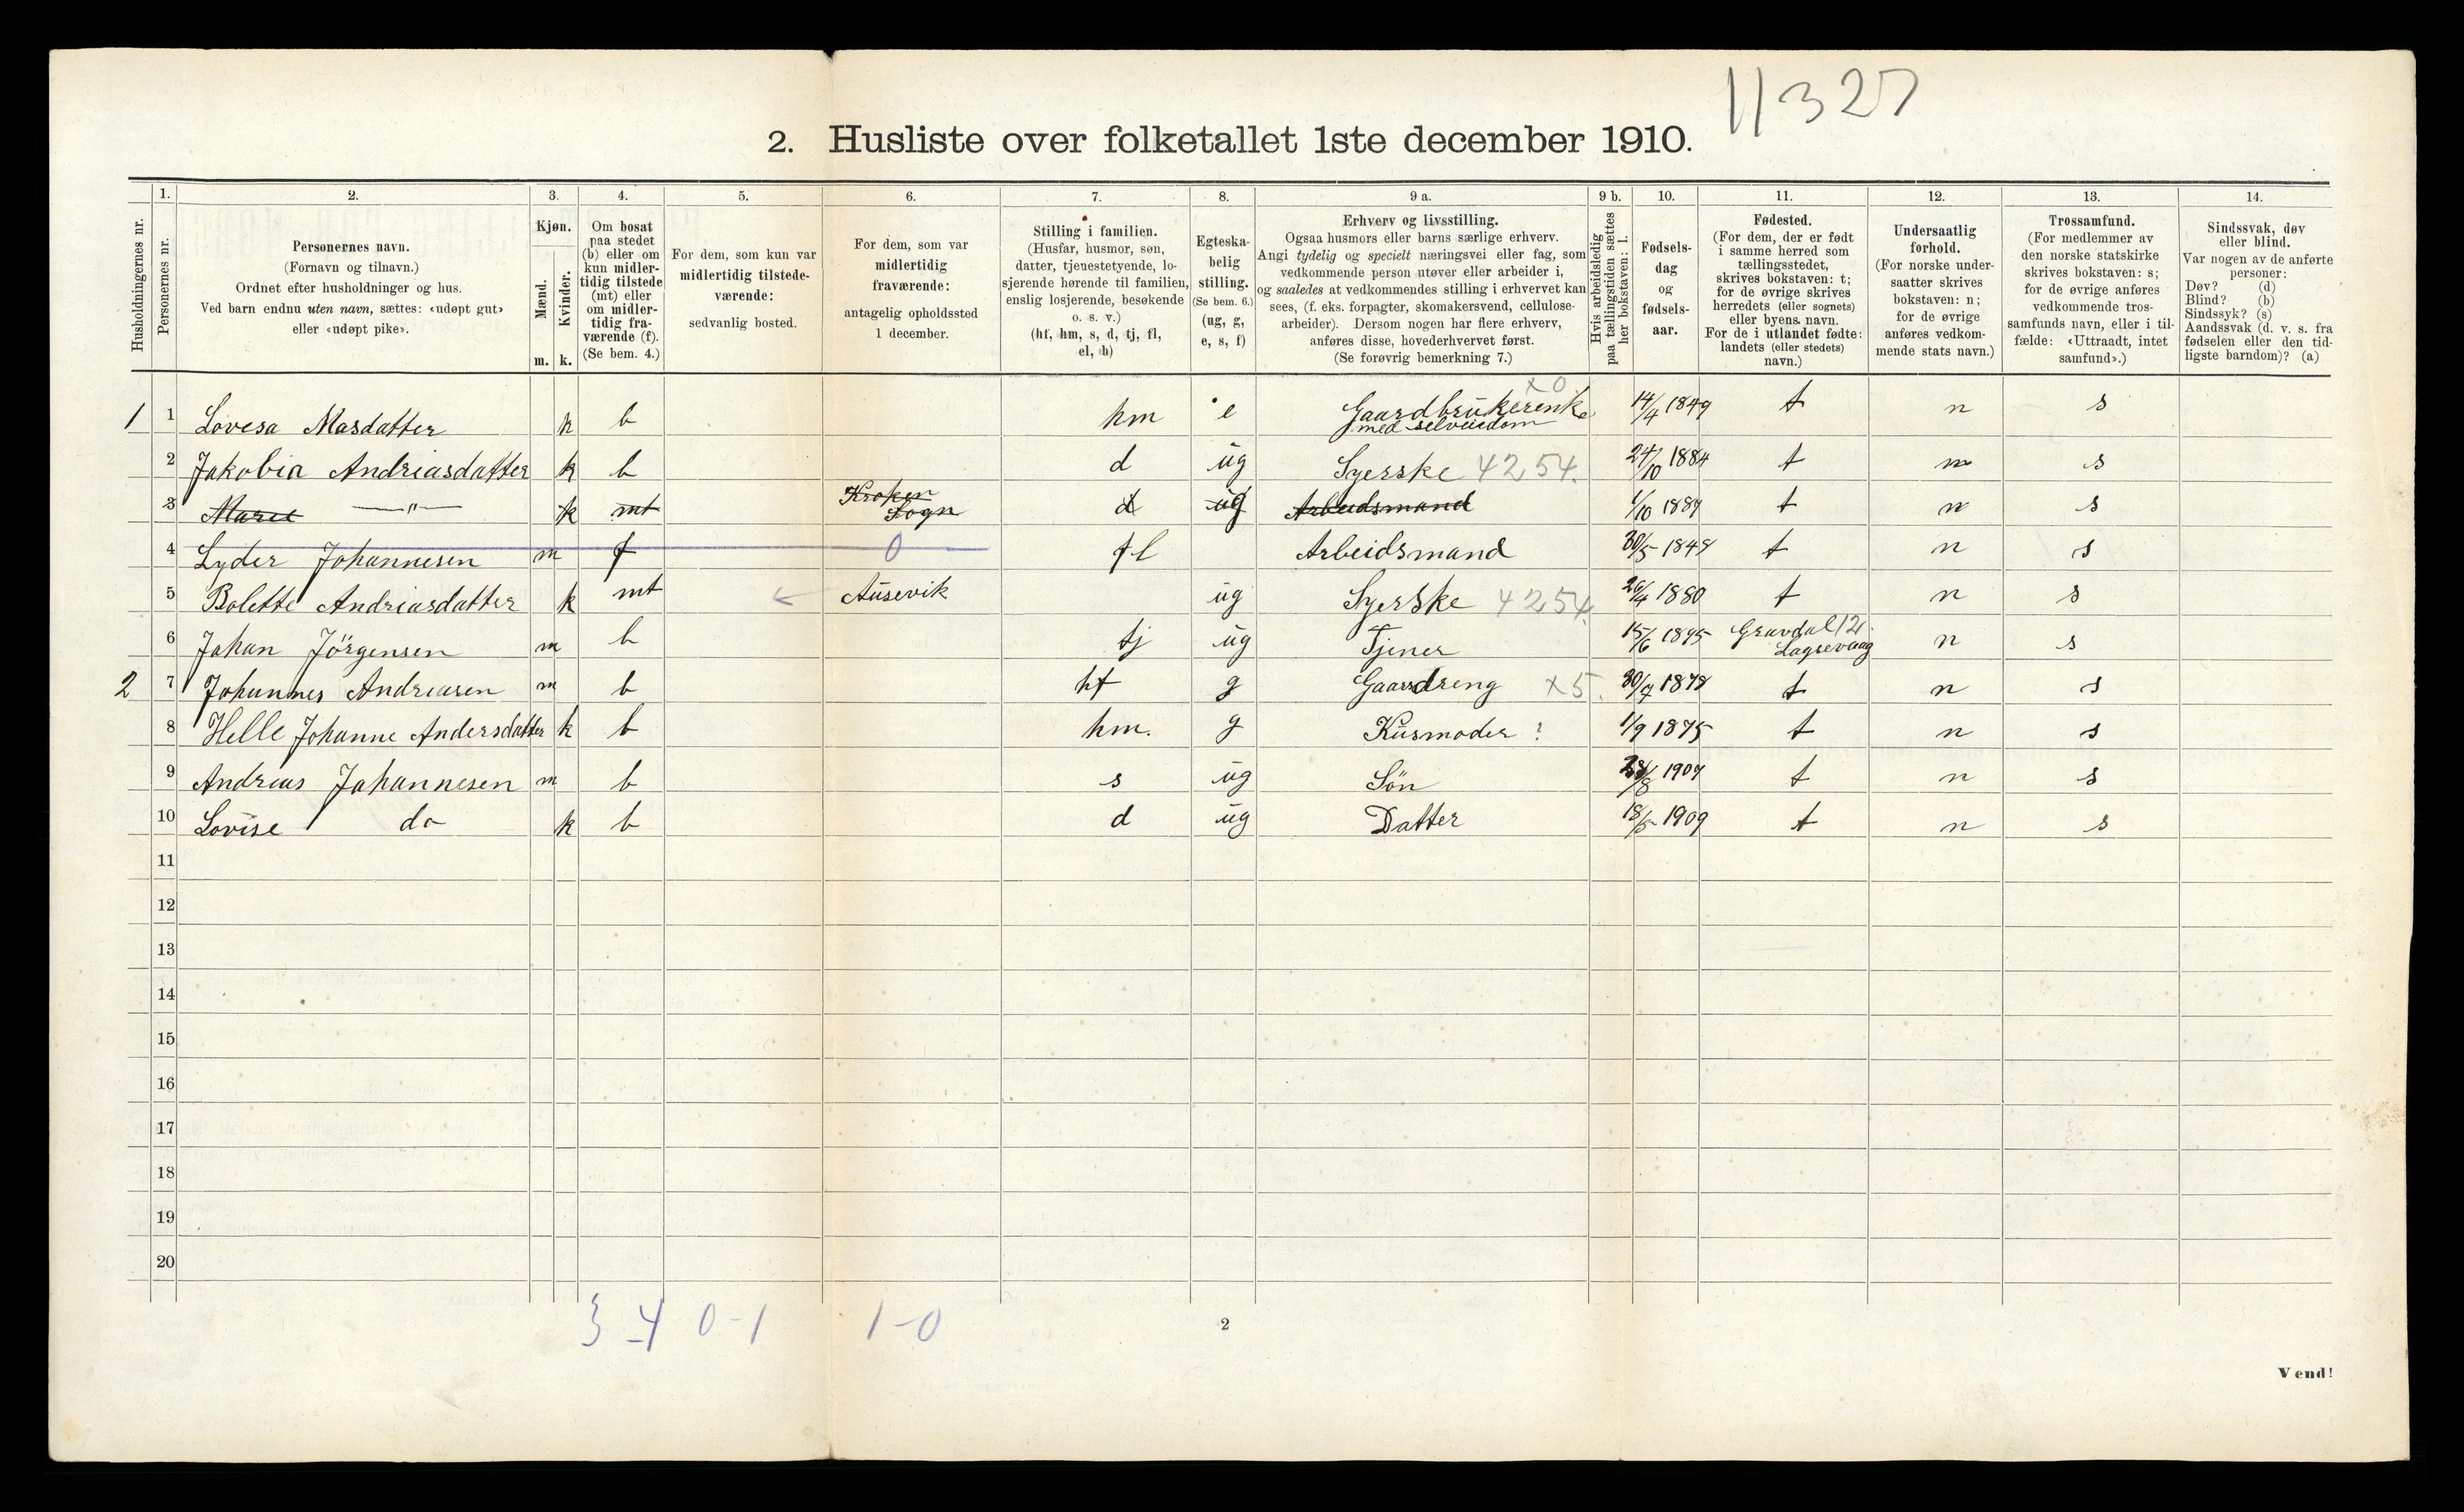 11327
2. Husliste over folketallet 1ste december 1910.
Husholdningernes nr.
1.
Personernes nr.
2.
Personernes navn.
(Fornavn og tilnavn.)
Ordnet efter husholdninger og hus.
Ved barn endnu uten navn, sættes: «udøpt gut»
eller «udøpt pike».
3.
Kjøn.
Mænd.
Kvinder.
m. k.
4.
Om bosat
paa stedet
(b) eller om
kun midler-
tidig tilstede
(mt) eller
om midler-
tidig fra-
værende (f).
(Se bem. 4.)
5.
For dem, som kun var
midlertidig tilstede-
værende:
sedvanlig bosted.
6.
For dem, som var
midlertidig
fraværende:
antagelig opholdssted
1 december.
7.
Stilling i familien.
(Husfar, husmor, søn,
datter, tjenestetyende, lo-
sjerende hørende til familien,
enslig losjerende, besøkende
o. s. v.)
(hf, hm, s, d, tj, fl,
el, b)
8.
Egteska-
belig
stilling.
(Se bem. 6.)
(ug, g,
e, s, f)
9 a.
Erhverv og livsstilling.
Ogsaa husmors eller barns særlige erhverv.
Angi tydelig og specielt næringsvei eller fag, som
vedkommende person utøver eller arbeider i,
og saaledes at vedkommendes stilling i erhvervet kan
sees, (f. eks. forpagter, skomakersvend, cellulose-
arbeider). Dersom nogen har flere erhverv,
anføres disse, hovederhvervet først.
(Se forøvrig bemerkning 7.)
9 b.
Hvis arbeidsledig
paa tællingstiden sættes
her bokstaven: l.
10.
Fødsels-
dag
og
fødsels-
aar.
11.
Fødested.
(For dem, der er født
i samme herred som
tællingsstedet,
skrives bokstaven: t;
for de øvrige skrives
herredets (eller sognets)
eller byens navn.
For de i utlandet fødte:
landets (eller stedets)
navn.)
12.
Undersaatlig
forhold.
(For norske under-
saatter skrives
bokstaven: n;
for de øvrige
anføres vedkom-
mende stats navn.)
13.
Trossamfund.
(For medlemmer av
den norske statskirke
skrives bokstaven: s;
for de øvrige anføres
vedkommende tros-
samfunds navn, eller i til-
fælde: «Uttraadt, intet
samfund».)
14.
Sindssvak, døv
eller blind.
Var nogen av de anførte
personer:
Døv? (d)
Blind? (b)
Sindssyk? (s)
Aandssvak (d. v. s. fra
fødselen eller den tid-
ligste barndom)? (a)
x0
1 1 Lovesa Masdatter k b hm e Gaardbrukerenke 14/4 1849 t n s
med selveiedom
2 Jakobia Andriasdatter k b d ug Syerske 4254. 24/10 1884 t n s
Kroken
3 Maret —"— k mt Sogn d ug Arbeidsmand 1/10 1889 t n s
4 Lyder Johannesen m f 0 fl Arbeidsmand 30/5 1848 t n s
5 Bolette Andriasdatter k mt Ausevik ug Syerske 4254. 26/4 1880 t n s
6 Johan Jörgensen m b tj ug Tjener 15/6 1895 Gravdal 12. n s
Lagsevaag
2 7 Johannes Andreasen m b hf g Gaardsdreng x5. 30/7 1878 t n s
8 Helle Johanne Andersdatter k b hm. g Husmoder 1/9 1875 t n s
9 Andreas Johannesen m b s ug Sön /8 1907 t n s
10 Lovise do k b d ug Datter 18/5 1909 t n s
11
12
13
14
15
16
17
18
19
20
3 - 4 0 - 1 1 - 0
2
Vend!